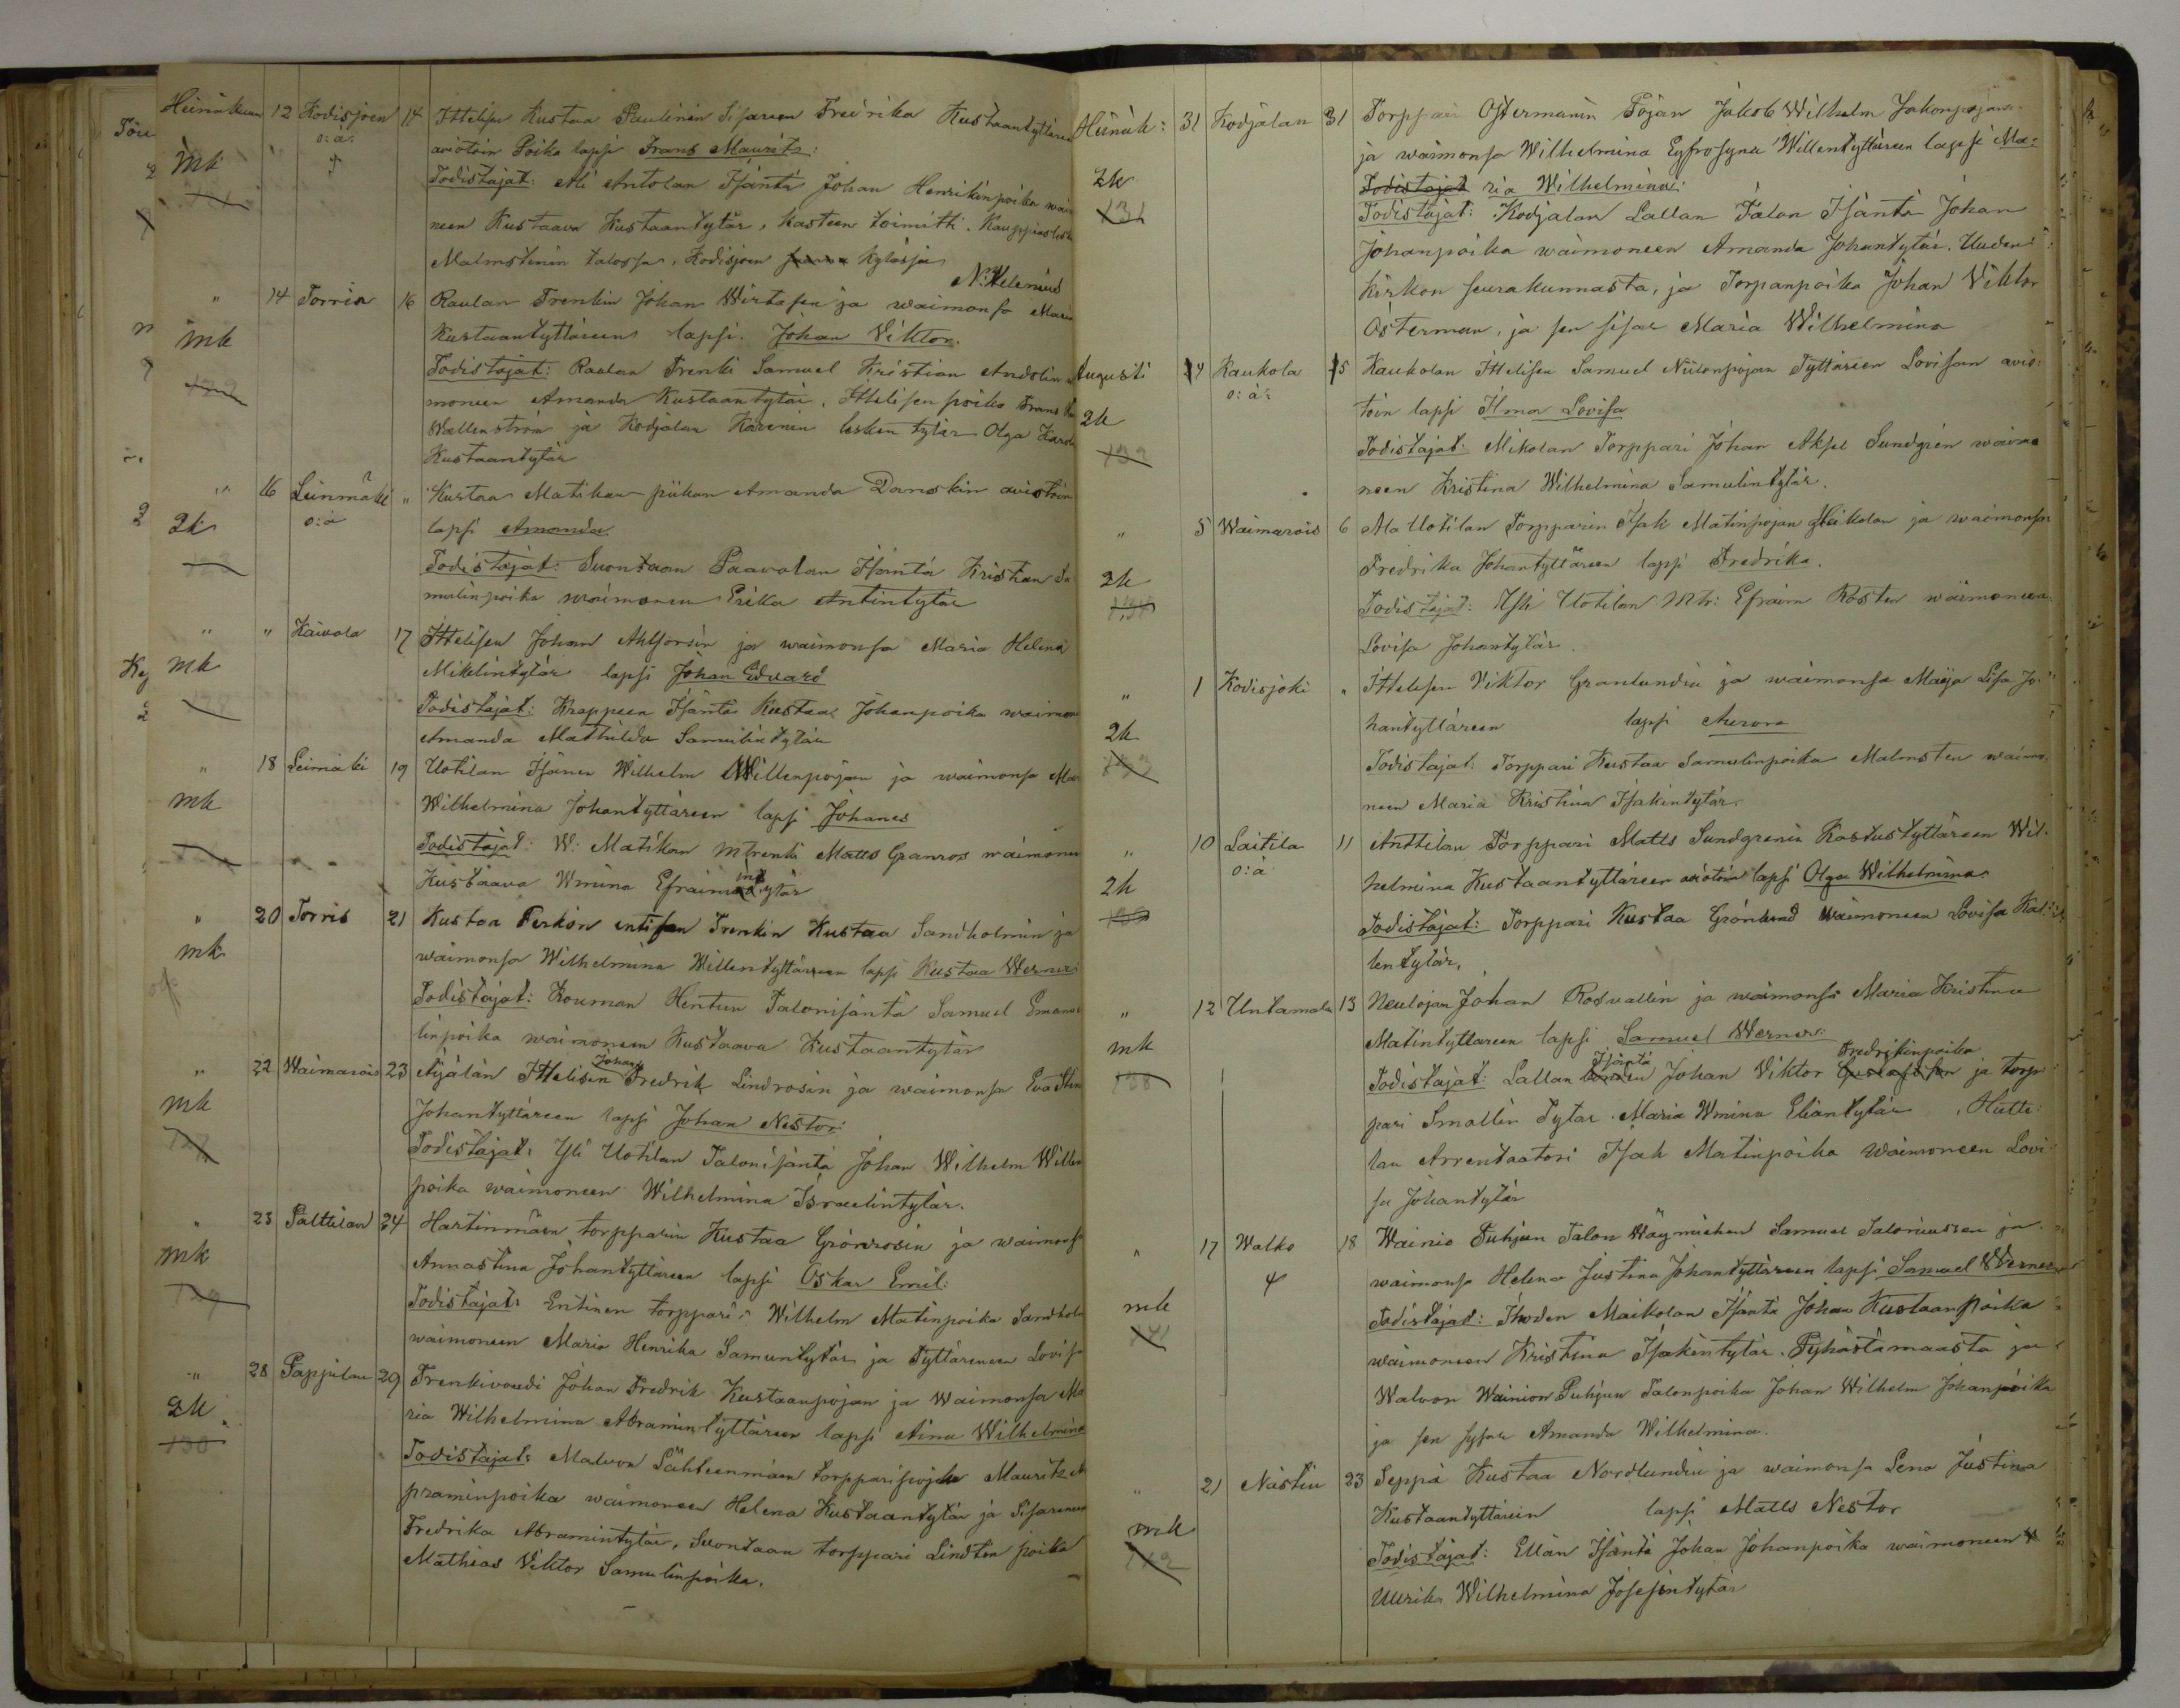 Heinäkuun 12 Kodisjoen 14 Ittelisen Kustaa Paulinin Sisareen Freirika Kustaantyttären
o: ä: aviotoin Poika lapsi Frans Maurits:
mk Todistajat: Ali Antolan Isäntä Johan Henrikinpoika wai
neen Kustaava Kustaantytär, Kasteen toimitti. Kauppiasleski
Malmstenin talossa, Kodisjoen kylässä
N: Helenius
" 14 Torria 16 Raulan Trenkin Johan Wirtasen ja waimonsa Maria
mk Kustaantyttäreen lapsi. Johan Viktor.
Todistajat: Raulan Trenki Samuel Kristian Andolin
moneen Amanda Kustaantytär. Ittelisen poika Frans
Wallenström ja Kodjalan Karenin lesken tytär Olga
Kustaantytär
" 16 Leinmäki " Kustaa Matikan piikan Amanda Danskin aviotoin
2k o: ä lapsi Amanda.
Todistajat: Suontaan Paavolan Isäntä Kristian Sa
mulinpoika waimoneen Erika Antintytär
" " Kaivola 17 Ittelisen Johan Ahlforsin ja waimonsa Maria Helena
mk Mikelintytär lapsi Johan Edvard
Todistajat: Krappeen Isäntä Kustaa Johanpoika waimon
Amanda Mathilda Samulintytär
" 18 Leimäki 19 Uotilan Isänen Wilhelm Willenpojan ja waimonsa Mar
mk Wilhelmina Johantyttäreen lapsi Johanes
Todistajat: W: Matikan Mtrenki Matts Granros waimonen
Kustaava Wmina Efraimintytär
" 20 Torris 21 Kustaa Ferkon entisen Trenkin Kustaa Sandholmin ja
mk waimonsa Wilhelmina Willentyttäreen lapsi Kustaa Werner:
Todistajat: Kouman Hentun Talonisäntä Samuel Emanue
linpoika waimoneen Kustaava Kustaantytär
" 22 Waimarois 23 Äijälän Ittelisen Johan Fredrik Lindrosin ja waimonsa Eva Stina
mk Johantyttäreen lapsi Johan Nestor:
127 Todistajat: Yli Uotilan Talonisäntä Johan Wilhelm Willen
poika waimoneen Wilhelmina Israelintytär.
" 23 Palttilan 24 Hartinmäen torpparin Kustaa Grönrosin ja waimonsa
mk Annastina Johantyttäreen lapsi Oskar Emil:
129 Todistajat: Entinen torppari: Wilhelm Matinpoika Sandholm
waimoneen Maria Henrika Samuntytär ja Tyttäreneen Lovisa
" 28 Pappilan 29 Trenkivoudi Johan Fredrik Kustaanpojan ja Waimonsa Ma
2k ria Wilhelmina Abramintyttäreen lapsi Aina Wilhelmina
130 Todistajat: Malvon Lähteenmäen torpparipojka Maurits A
praminpoika waimoneen Helena Kustaantytär ja Sisareneen
Fredrika Abramintytär, Suontaan torppari Lindten poika
Mathias Viktor Samulinpoika.
Heinäk: 31 Kodjalan 31 Torppari Ostermanin Pojan Jakob Wilhelm Jakonpojan
ja waimonsa Wilhelmina Eufrosyna Willentyttäreen lapsi Ma-
2k Todistajat ria Wilhelmina:
131 Todistajat: Kodjalan Lallan Talon Isäntä Johan
Johanpoika waimoneen Amanda Johantytär. Uuden
Kirkon seurakunnasta, ja Torpanpoika Johan Viktor
Österman, ja sen sisar Maria Wilhelmina
Augusti 4 Kaukola 5 Kaukolan Ittelisen Samuel Niilonpojan Tyttäreen Lovisan avio-
o: ä: toin lapsi Ilma Lovisa
2k Todistajat: Mikolan Torppari Johan Aksel Sundgrén waimo
132 neen Kristina Wilhelmina Samulintytär.
" 5 Waimarois 6 Ala Uotilan Torpparin Isak Matinpojan Heikolan ja waimonsa
2k Fredrika Johantyttäreen lapsi Fredrika.
134 Todistajat: Yli Uotilan Mtr: Efraim Rosten waimoneen
Lovisa Johantytär.
" 1 Kodisjoki " Ittelisen Viktor Granlundin ja waimonsa Maija Lisa Jo-
2k hantyttäreen lapsi Aurora
133 Todistajat: Torppari Kustaa Samulinpoika Malmsten waimo
neen Maria Kristina Isakintytär.
" 10 Laitila 11 Anttilan Torppari Matts Sundgrenin Kasvustyttäreen Wil-
2k o: ä helmina Kustaantyttäreen aviotoin lapsi Olga Wilhelmina.
Todistajat: Torppari Kustaa Grönlund Waimoneen Lovisa Kal
lentytär.
" 12 Untamala 13 Neulojan Johan Rosvallin ja waimonsa Maria Kristina
mk Matintyttareen lapsi Samuel Werner:
138 Todistajat: Lallan Isäntä Johan Viktor Fredrikinpoika ja torp
pari Smallin Tytar Maria Wmina Eliantytär, Hutti-
lan Arrentaatori Isak Matinpoika Waimoneen Lovi
sa Johantytär
" 17 Walko 18 Wainio Puhjun Talon Wäymiehen Samuel Saloniussen ja
mk waimonsa Helena Justina Johantyttäreen lapsi Samuel Werner
141 Todistajat: Ihoden Maikolan Isäntä Johan Kustaanpoika
waimoneen Kristina Isakintytär. Pyhästämaasta ja
Walvon Wainion Puhjun Talonpoika Johan Wilhelm Johanpoika
ja sen sysar Amanda Wilhelmina.
" 21 Nästin 23 Seppä Kustaa Nordlundin ja waimonsa Lena Justina
mk Kustaantyttärein lapsi Matts Nestor
142 Todistajat: Ellän Isäntä Johan Johanpoika waimoneen
Ullrika Wilhelmina Josefintytär